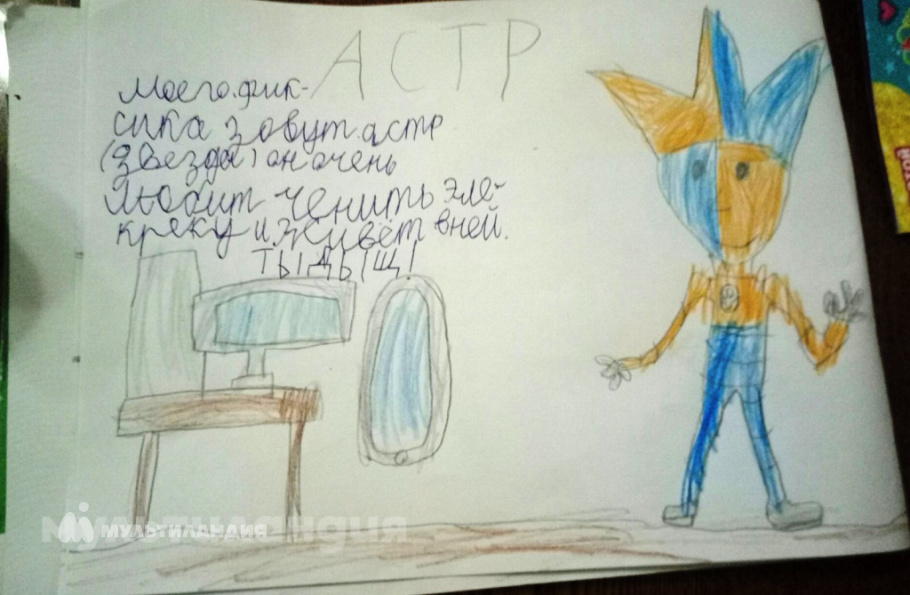 АСТР
Моего фик-
сика зовут астр
(звезда) он очень
любит ченить эле-
креку и живёт вней.
ТЫДЫЩ!
МУЛЬТИЛАНДИЯ